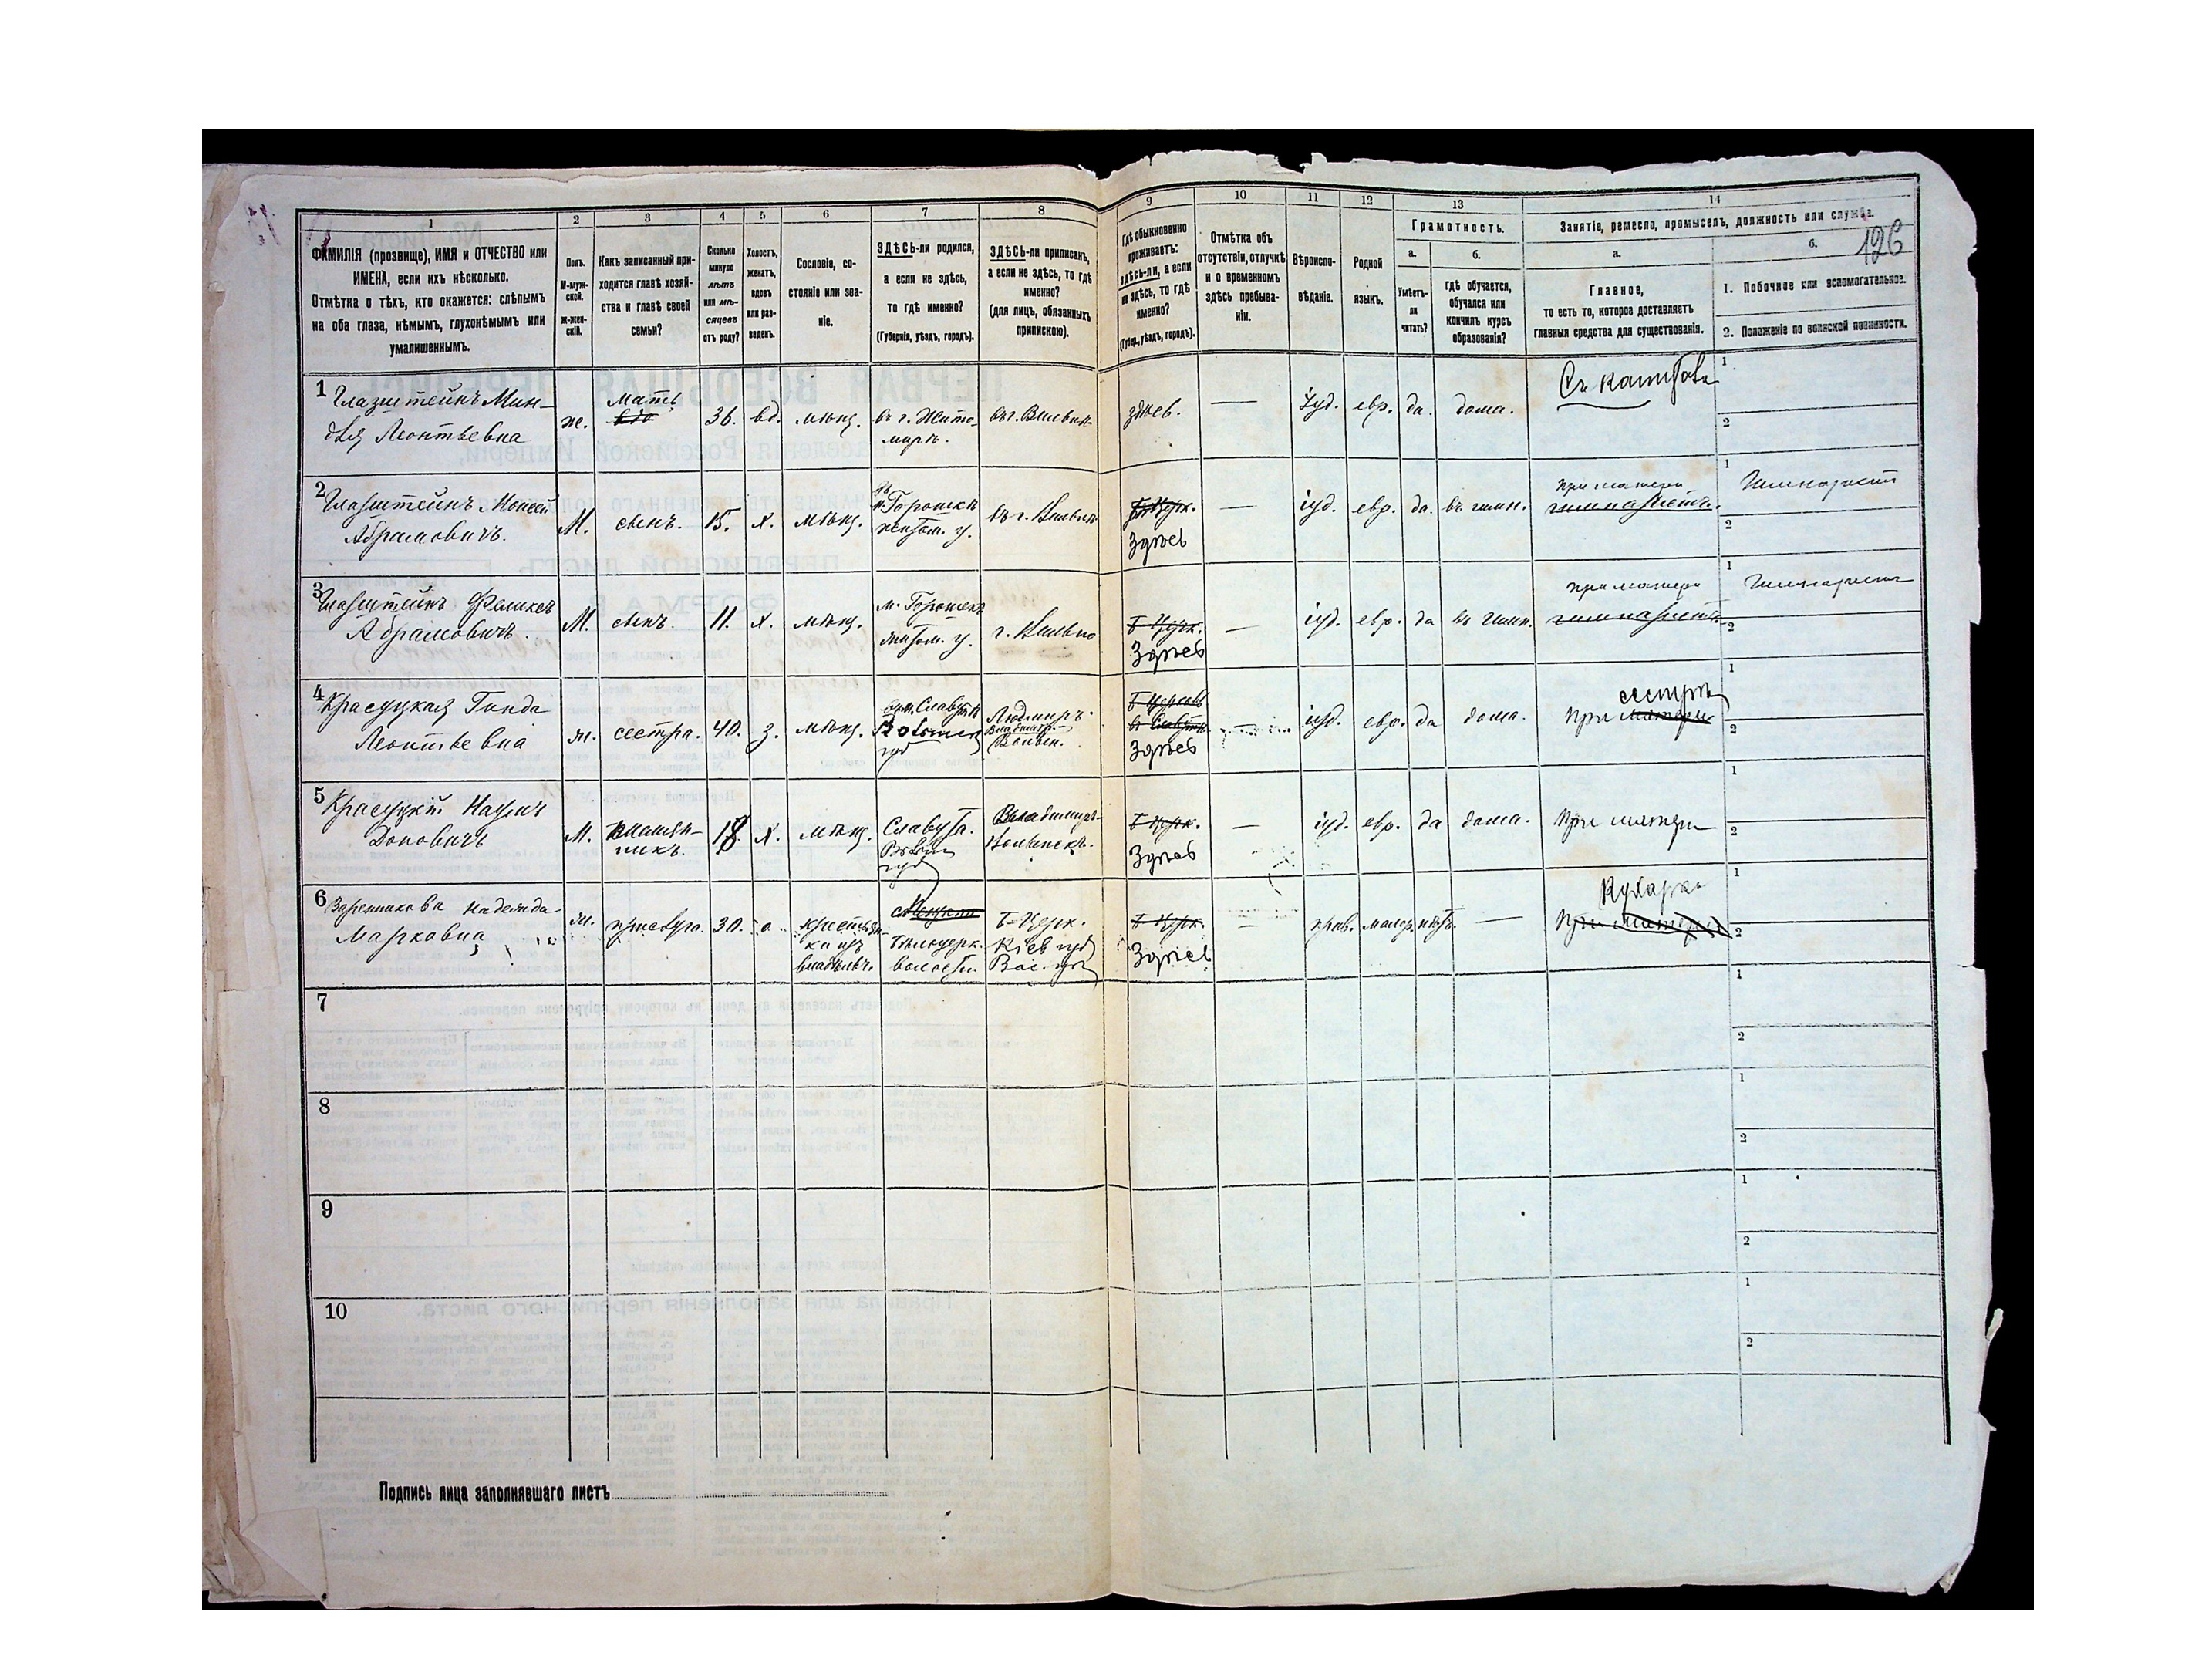 1
2
3
4
5
6
7
8
9
10
11
12
13
14
126
ФАМИЛІЯ (прозвище), ИМЯ и ОТЧЕСТВО или
ИМЕНА, если ихъ нѣсколько.
Отмѣтка о тѣхъ, кто окажется: слѣпымъ
на оба глаза, нѣмымъ, глухонѣмымъ или
умалишеннымъ.
Полъ.
М-муж-
ской.
ж-жен-
скій.
Какъ записанный при-
ходится главѣ хозяй-
ства и главѣ своей
семьи?
Сколько
минуло
лѣтъ
или мѣ-
сяцевъ
отъ роду?
Холостъ,
женатъ,
вдовъ
или раз-
веденъ.
Сословіе, со-
стояніе или зва-
ніе.
ЗДѢСЬ-ли родился,
а если не здѣсь,
то гдѣ именно?
(Губернія, уѣздъ, городъ).
ЗДѢСЬ-ли приписанъ,
а если не здѣсь, то гдѣ
именно?
(для лицъ, обязанныхъ
припискою).
Гдѣ обыкновенно
проживаетъ:
здѣсь-ли, а если
не здѣсь, то гдѣ
именно?
(Губер., уѣздъ, городъ).
Отмѣтка объ
отсутствіи, отлучкѣ
и о временномъ
здѣсь пребыва-
ніи.
Вѣроиспо-
вѣданіе.
Родной
языкъ.
Грамотность.
а.
Умѣетъ-
ли
читать?
б.
гдѣ обучается,
обучался или
кончилъ курсъ
образованія?
Занятіе, ремесло, промыселъ, должность или служба.
а.
Главное,
то есть то, которое доставляетъ
главныя средства для существованія.
б.
1. Побочное или вспомогательное.
2. Положеніе по воинской повинности.
1 Глазштейнъ Мин-
для Леонтьевна
ж.
мать
36.
вд.
мѣщ.
въ г. Жито-
мирѣ.
въ г. Вильнѣ
здѣсь.
—
Іуд.
евр.
да.
дома.
Съ капитала
1
2
2 Глазштейнъ Моисей
Абрамовичъ.
М.
сынъ.
15.
х.
мѣщ.
м. Горошки
житом. у.
въ г. Вильнѣ
Б. Церк.
Здѣсь
—
іуд.
евр.
да.
въ гимн.
при матери
гимназистъ.
1 Гимназист
2
3 Глазштейнъ Феликсъ
Абрамовичъ.
М.
сынъ.
11.
х.
мѣщ.
м. Горошки
житом. у.
г. Вильно
Б-Церк.
Здѣсь
—
іуд.
евр.
да
въ гимн.
при матери
гимназистъ
1 Гимназист
2
4 Красуцкая Гинда
Леонтьевна
ж.
сестра.
40.
з.
мѣщ.
Славута
Волынск
губ
Владимір.
Волын.
Б-Церковь
Здѣсь
іуд.
евр.
да
дома.
сестрѣ
при матери
1
2
5 Красуцкій Наумъ
Доновичъ
М.
племян-
никъ.
18.
х.
мѣщ.
Славута.
Волын
губ
Владимиръ-
Волынскъ.
Б-Церк.
Здѣсь
—
іуд.
евр.
да
дома.
При матери
1
2
6 Надежда
Марковна
ж.
прислуга.
30.
крестьян-
ка изъ
владѣльч.
Бѣлоцерк.
волости.
Б-Церк.
Кіев губ
Вас. у
Б-Церк.
Здѣсь
—
прав.
малор.
нѣтъ.
—
Кухарка
При матери
1
2
7
1
2
8
1
2
9
1
2
10
1
2
Подпись лица заполнявшаго листъ